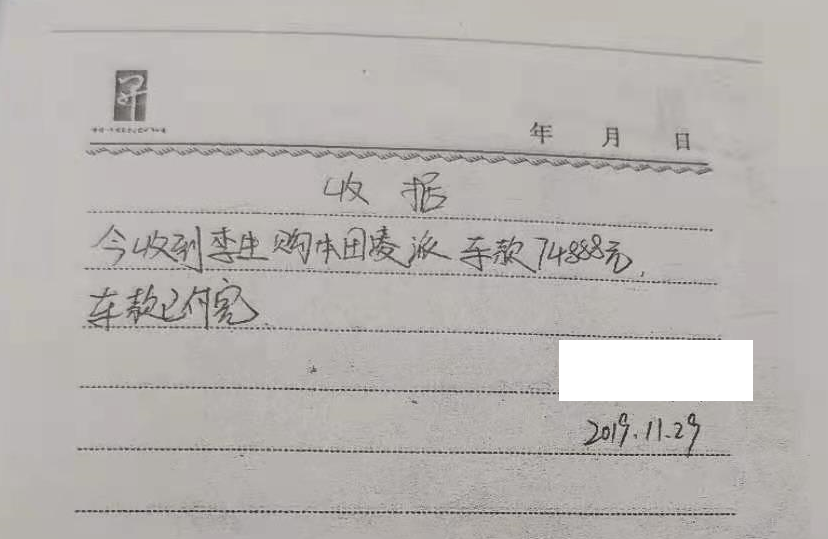 年 月 日
收 据
今收到李生购本田凌派车款74888元,
车款已付完
2019.11.29